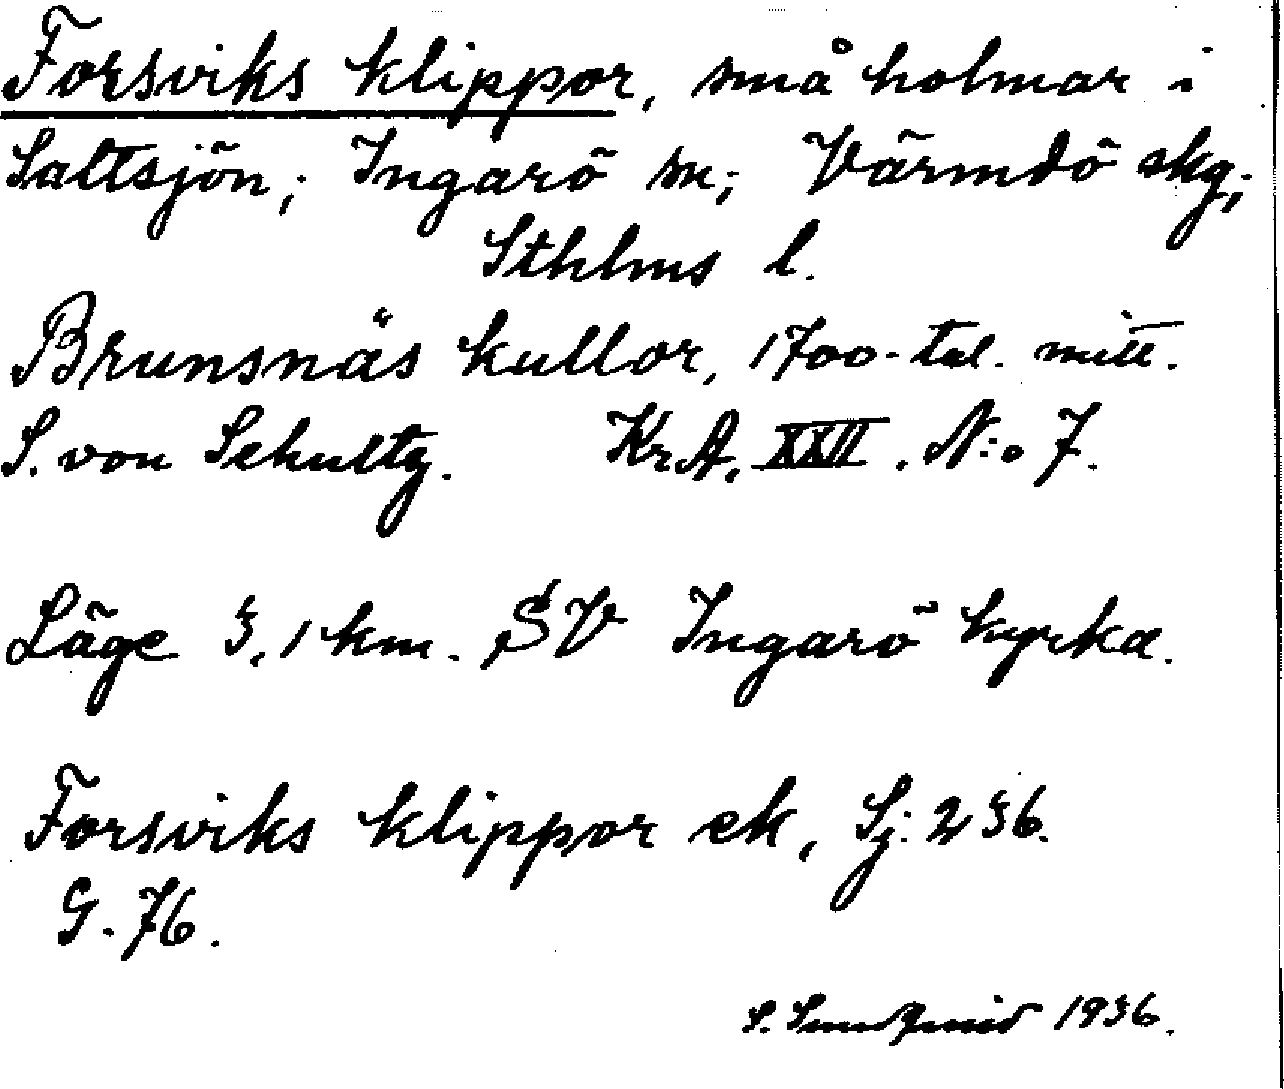 Forsviks klippor, små holmar i
Saltsjön; Ingarö sn; Värmdö skg;
Sthlms l.
Brunsnäs kullor, 1700-tal. mitt.
S. von Schultz. Kr.A. XXII. N:o 7.
Läge 3,1 km. SV Ingarö kyrka.
Forsviks klippor ek, Sj: 236.
G. 76.
S. 1936.